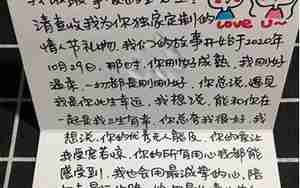 请查收我为你独家定制的
Love u~
情人节礼物,我们的故事开始于2020年
10月29日,那时,你刚好成熟,我刚好
温柔,一切都是刚刚好,你总说,遇见
我是你此生幸运,我想说,能和你在
一起是我三生有幸,你总有我很好,我
想说,你的优秀无人能及,你的宠让
我受宠若惊,你的所有用心我都能
感受到,我也会用最诚挚的心,陪